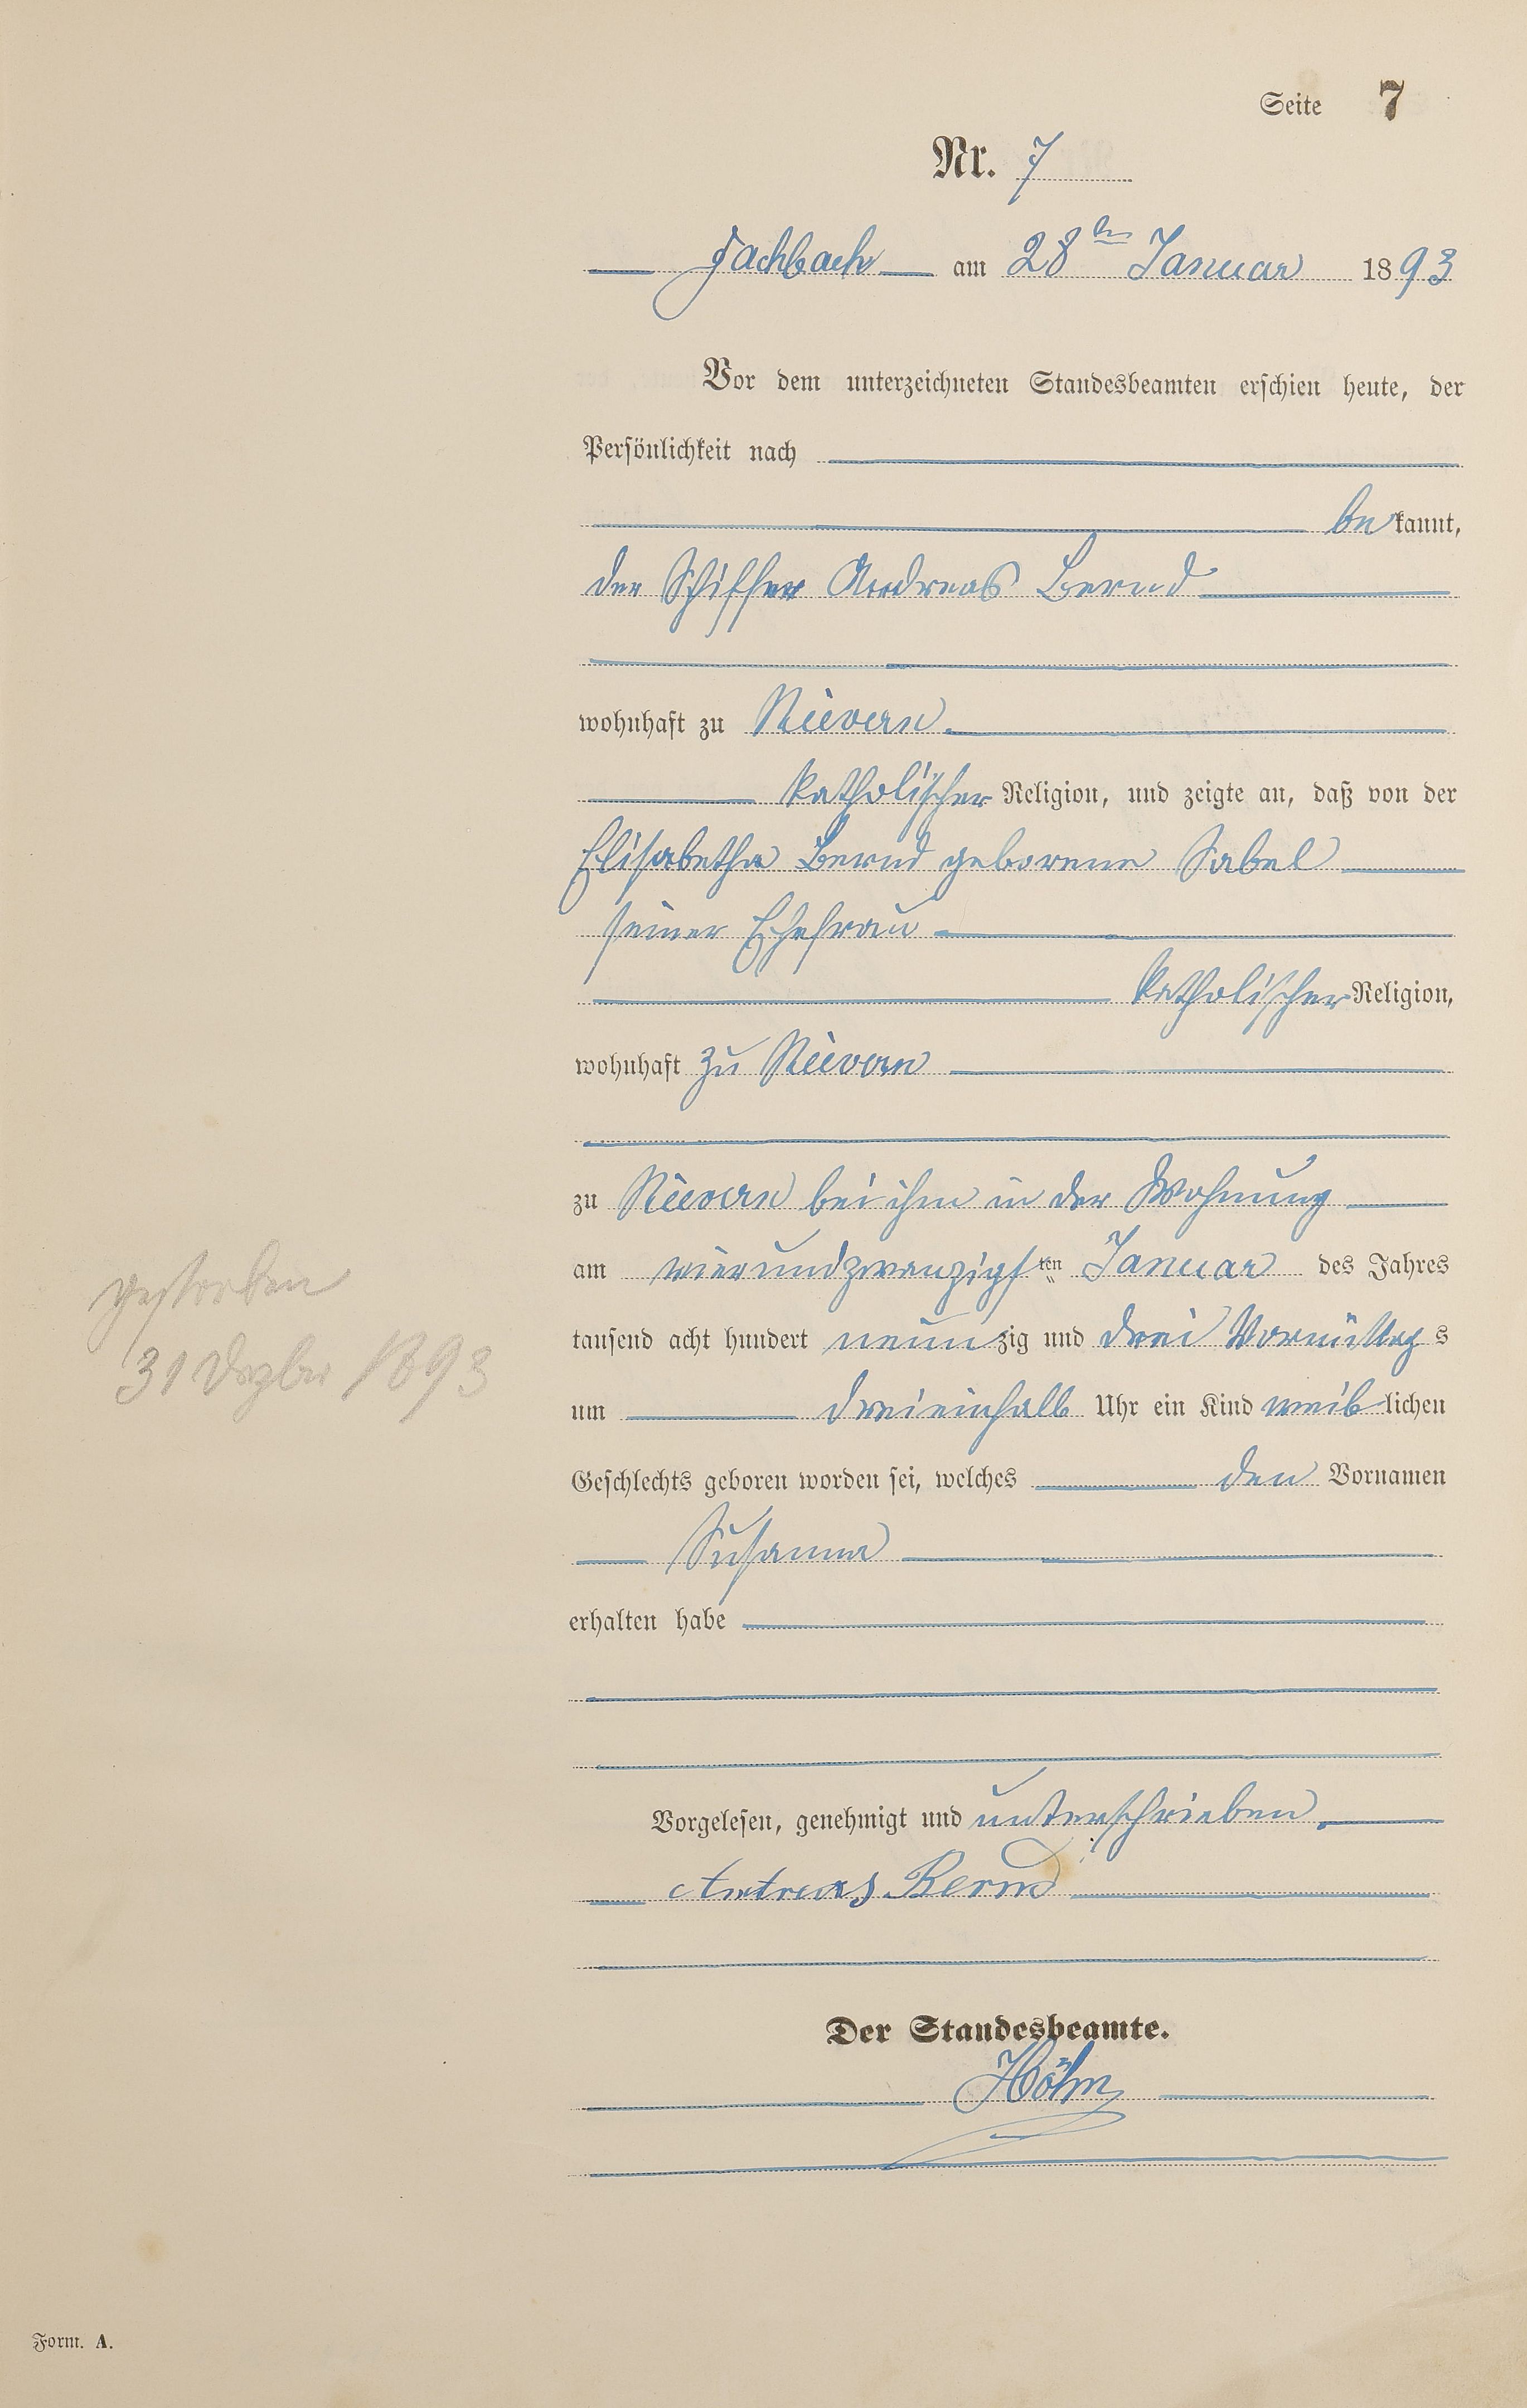 Seite 7
Nr. 7
Fachbach am 28ten Januar 1893
Vor dem unterzeichneten Standesbeamten erschien heute, der
Persönlichkeit nach
bekannt,
der Schiffer Andreas Bernd
wohnhaft zu Nievern.
katholischer Religion, und zeigte an, daß von der
Elisabetha Bernd geborene Sabel
seiner Ehefrau
katholischer Religion,
wohnhaft zu Nievern
zu Nievern bei ihm in der Wohnung
am vierundzwanzigsten Januar des Jahres
tausend acht hundert neunzig und drei Vormittags
um dreieinhalb Uhr ein Kind weiblichen
Geschlechts geboren worden sei, welches den Vornamen
Susanna
erhalten habe
Vorgelesen, genehmigt und unterschrieben.
Andreas Bernd
Der Standesbeamte.
Höhn
gestorben
31 Dezber 1893
Form. A.